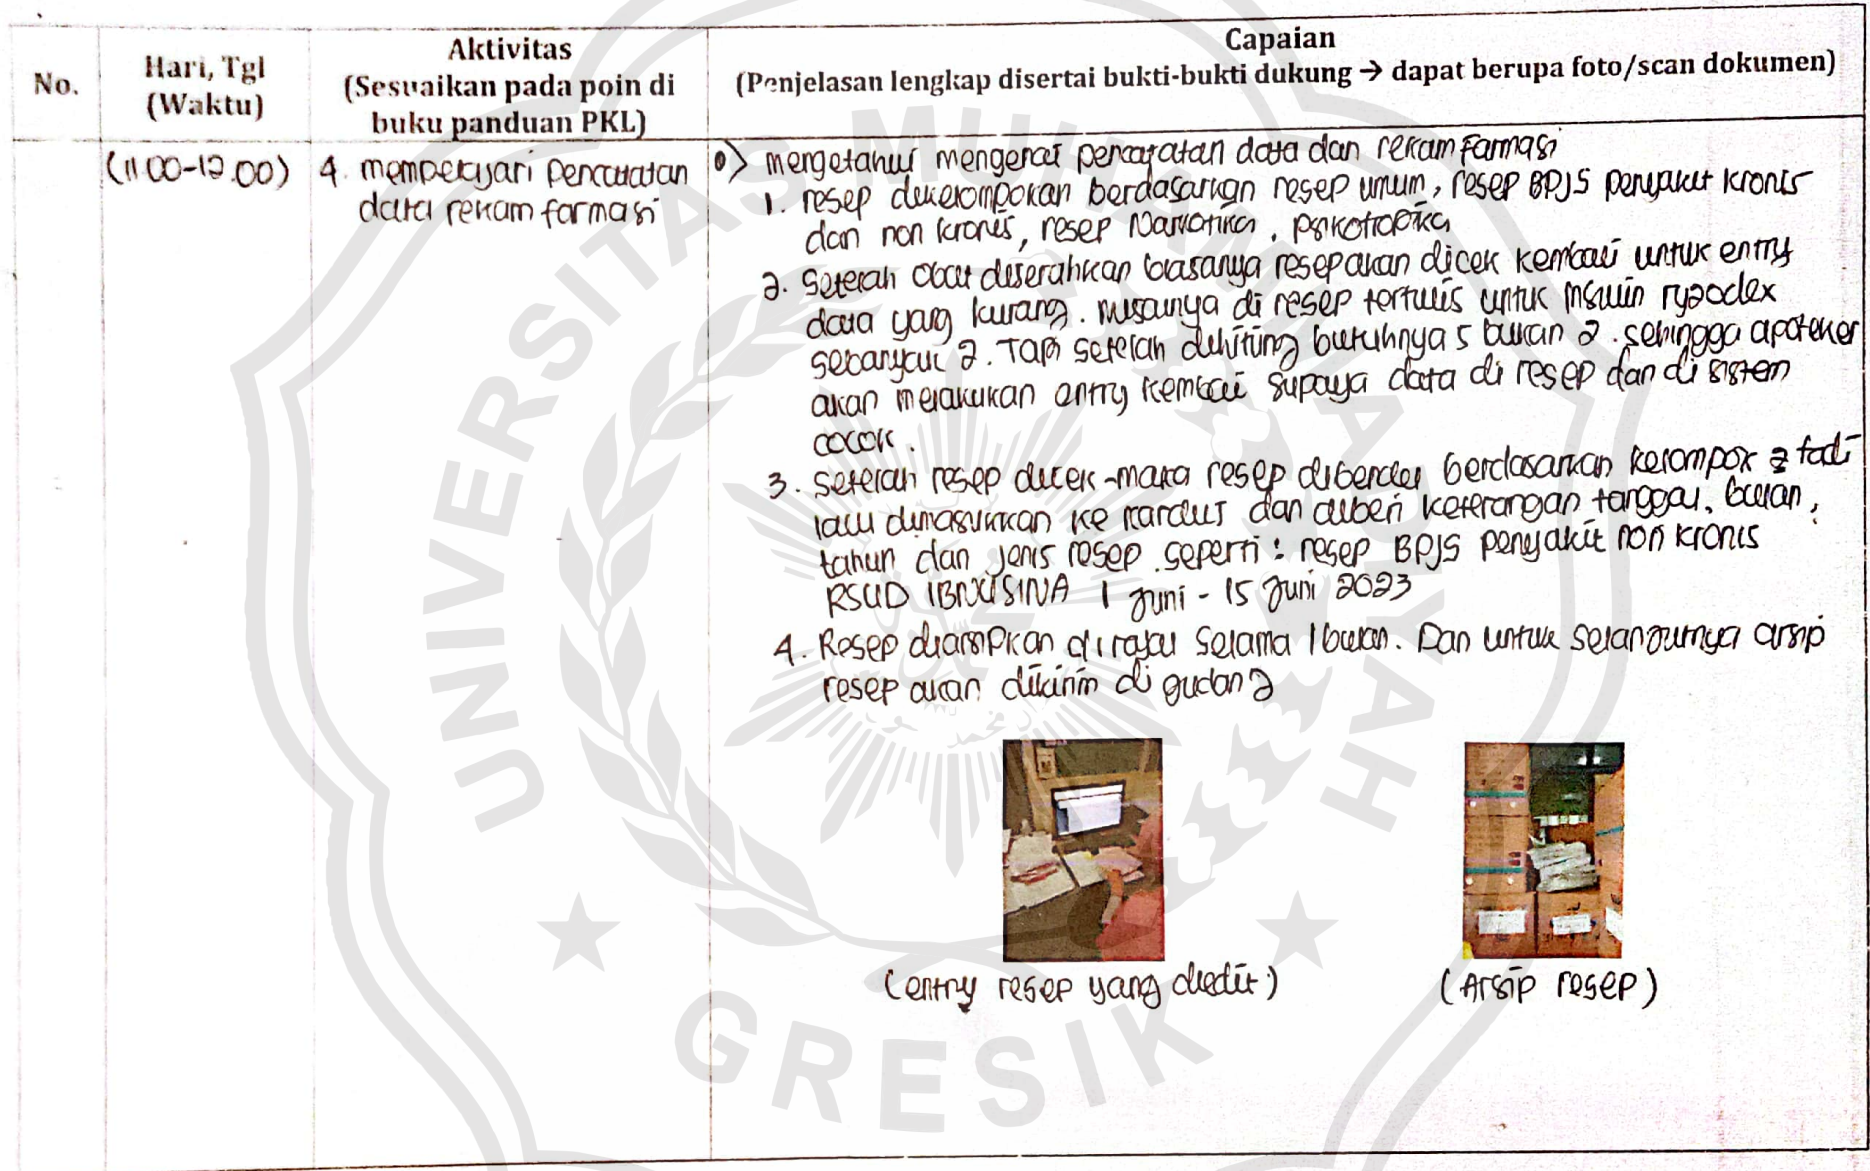 No.
Hari, Tgl
(Waktu)
Aktivitas
(Sesuaikan pada poin di
buku panduan PKL)
Capaian
(Penjelasan lengkap disertai bukti-bukti dukung → dapat berupa foto/scan dokumen)
(11.00-12.00)
4. mempelajari Pencatatan
data rekam farmasi
mengetahui mengenai pencatatan data dan rekam Farmasi
1. resep dikelompokan berdasarkan resep umum, resep BPJS penyakit kronis
dan non kronis, resep Narkotika, psikotropika
2. Setelah Obat diserahkan biasanya resep akan dicek kembali untuk entry
data yang kurang. misalnya di resep tertulis untuk insulin ryzodex
sebanyak 2. Tapi setelah dihitung butuhnya 5 bukan 2. sehingga apoteker
akan melakukan entry kembali supaya data di resep dan di sistem
cocok.
3. Setelah resep dicek-maka resep dibendel berdasarkan kelompok tadi
lalu dimasukkan ke kardus dan diberi keterangan tanggal, bulan,
tahun dan jenis resep seperti : resep BPJS penyakit non kronis
RSUD IBNU SINA 1 Juni - 15 Juni 2023
4. Resep diarsipkan di rak selama 1 bulan. Dan untuk selanjutnya arsip
resep akan dikirim di gudang
(entry resep yang diedit)
(Arsip resep)
UNIVERSITAS MUHAMMADIYAH
GRESIK